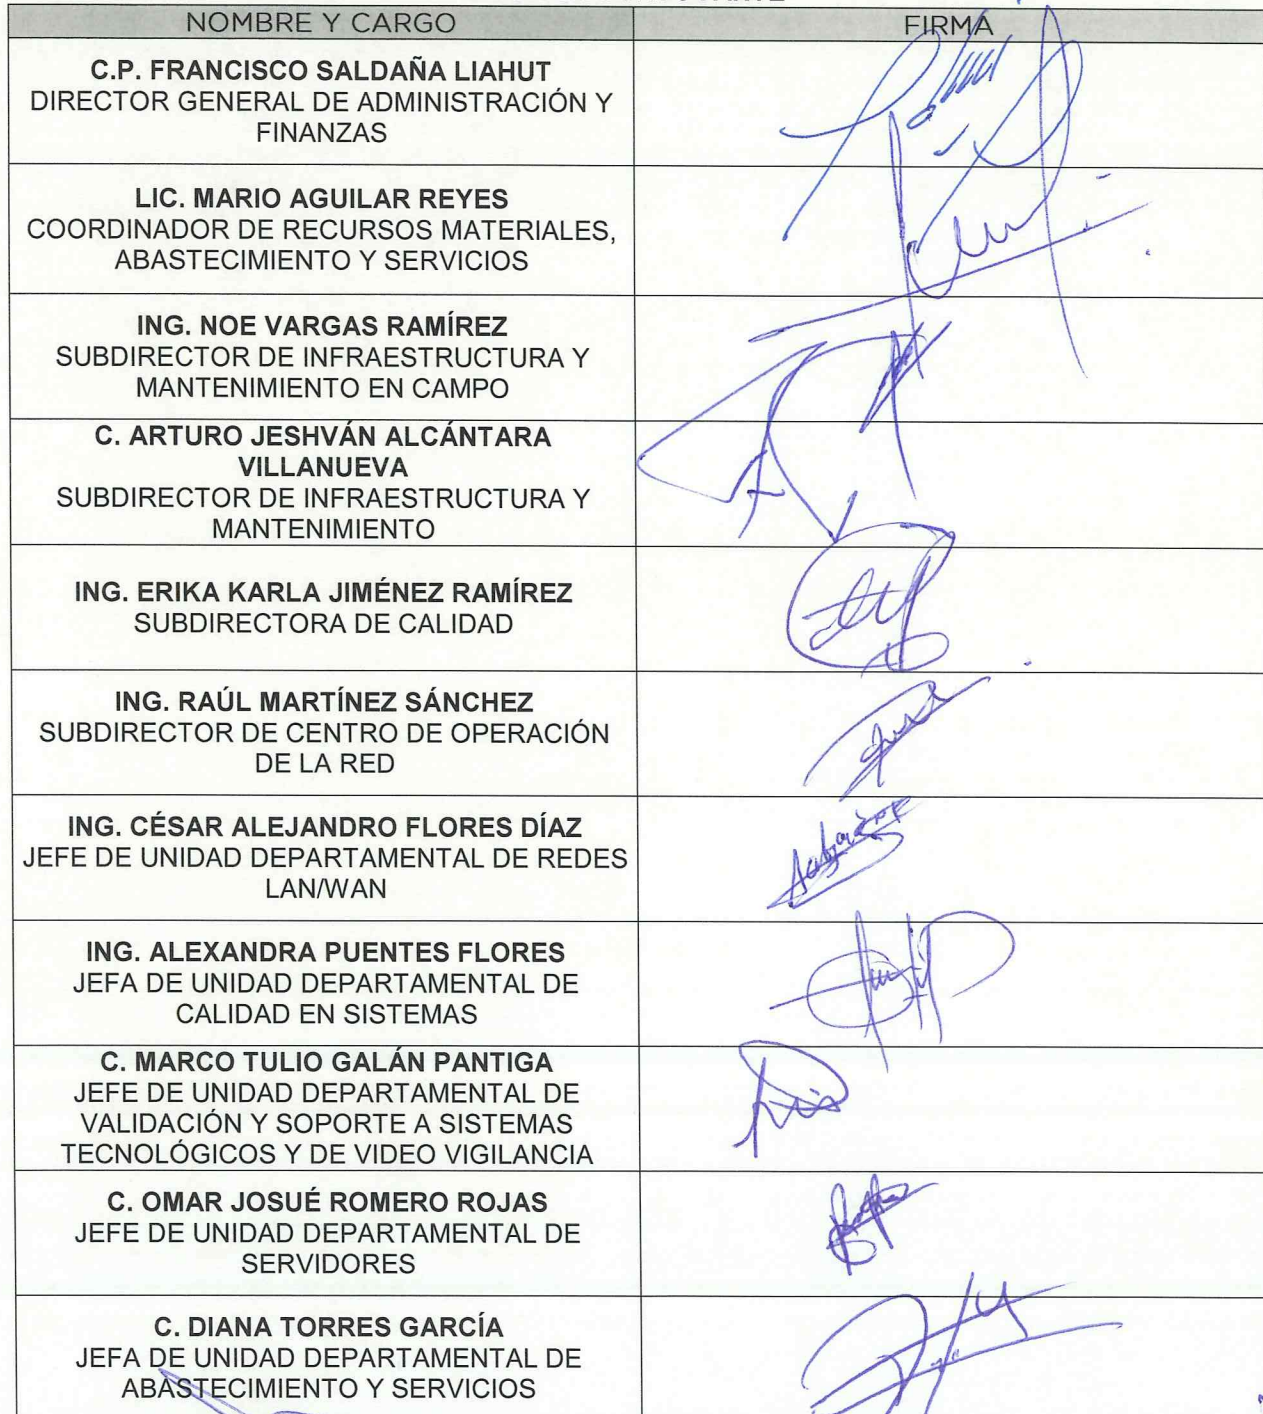 NOMBRE Y CARGO
FIRMA
C.P. FRANCISCO SALDAÑA LIAHUT
DIRECTOR GENERAL DE ADMINISTRACIÓN Y
FINANZAS
LIC. MARIO AGUILAR REYES
COORDINADOR DE RECURSOS MATERIALES,
ABASTECIMIENTO Y SERVICIOS
ING. NOE VARGAS RAMÍREZ
SUBDIRECTOR DE INFRAESTRUCTURA Y
MANTENIMIENTO EN CAMPO
C. ARTURO JESHVÁN ALCÁNTARA
VILLANUEVA
SUBDIRECTOR DE INFRAESTRUCTURA Y
MANTENIMIENTO
ING. ERIKA KARLA JIMÉNEZ RAMÍREZ
SUBDIRECTORA DE CALIDAD
ING. RAÚL MARTÍNEZ SÁNCHEZ
SUBDIRECTOR DE CENTRO DE OPERACIÓN
DE LA RED
ING. CÉSAR ALEJANDRO FLORES DÍAZ
JEFE DE UNIDAD DEPARTAMENTAL DE REDES
LAN/WAN
ING. ALEXANDRA PUENTES FLORES
JEFA DE UNIDAD DEPARTAMENTAL DE
CALIDAD EN SISTEMAS
C. MARCO TULIO GALÁN PANTIGA
JEFE DE UNIDAD DEPARTAMENTAL DE
VALIDACIÓN Y SOPORTE A SISTEMAS
TECNOLÓGICOS Y DE VIDEO VIGILANCIA
C. OMAR JOSUÉ ROMERO ROJAS
JEFE DE UNIDAD DEPARTAMENTAL DE
SERVIDORES
C. DIANA TORRES GARCÍA
JEFA DE UNIDAD DEPARTAMENTAL DE
ABASTECIMIENTO Y SERVICIOS